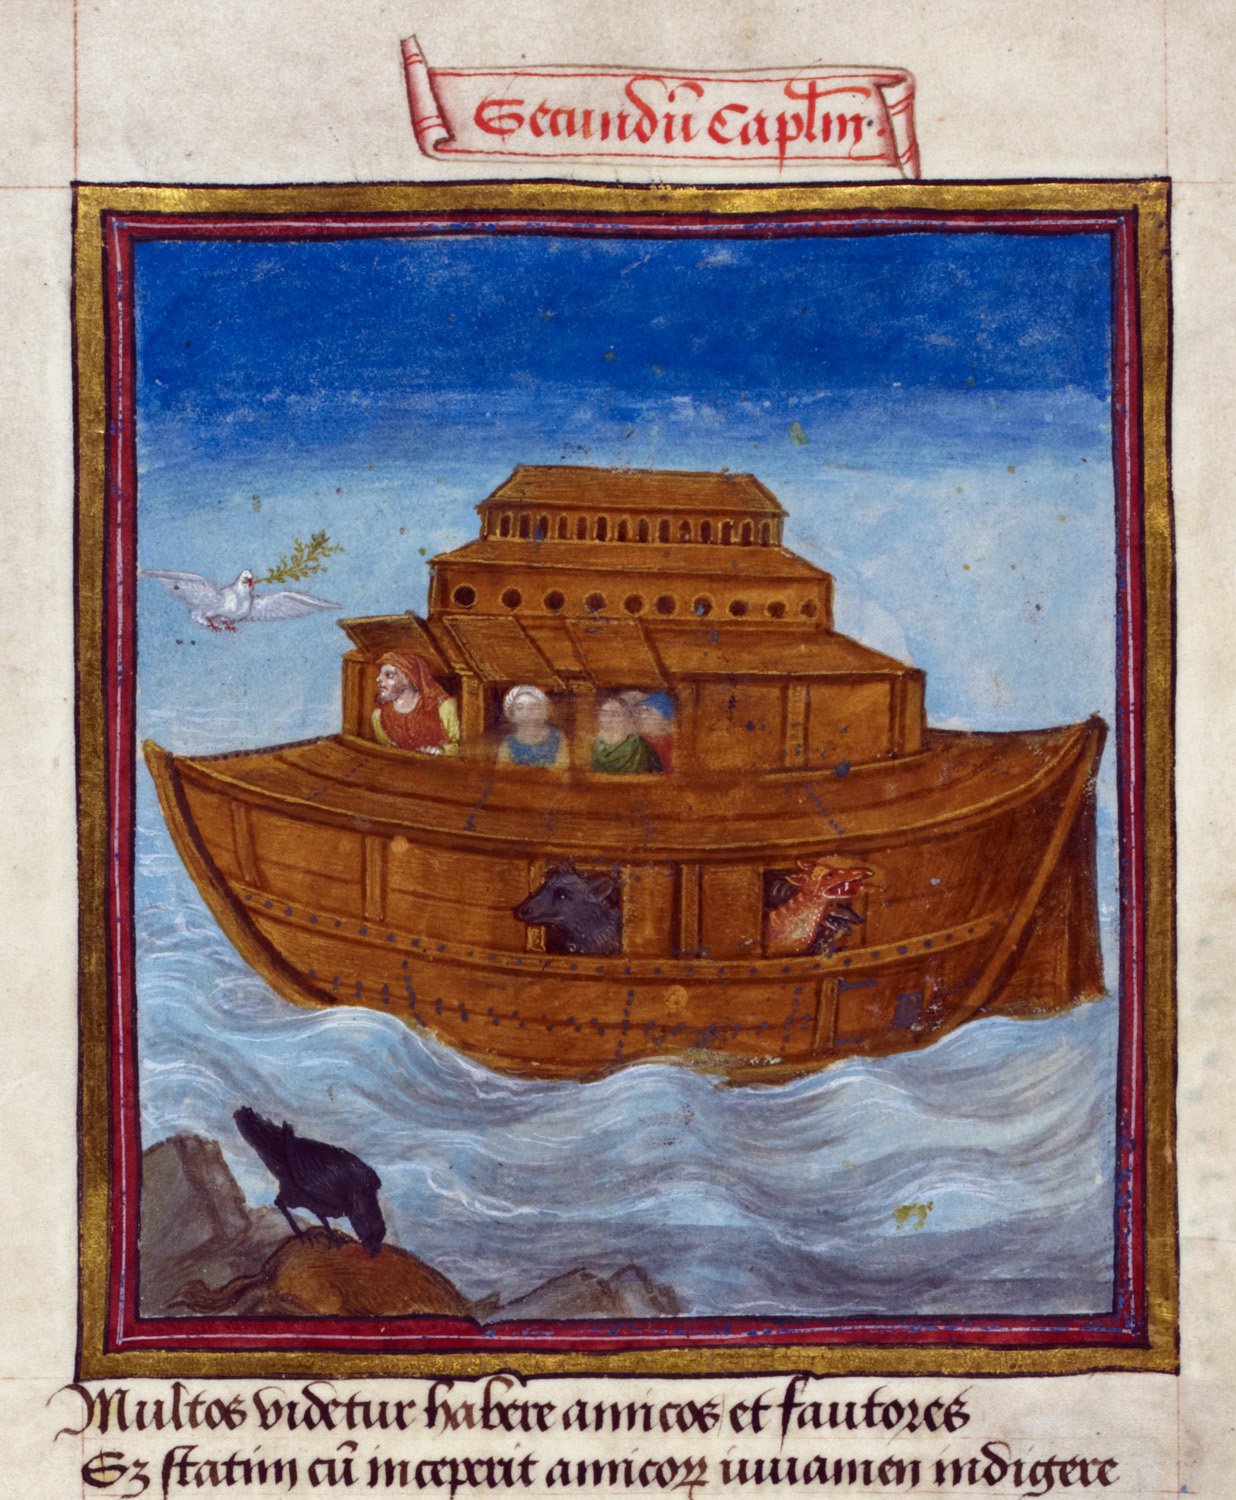 Secundũ Caplm̃.
Multos videtur habere amicos et fautores
Sꝫ statim cũ inceperit amicoꝝ iuuamen indigere